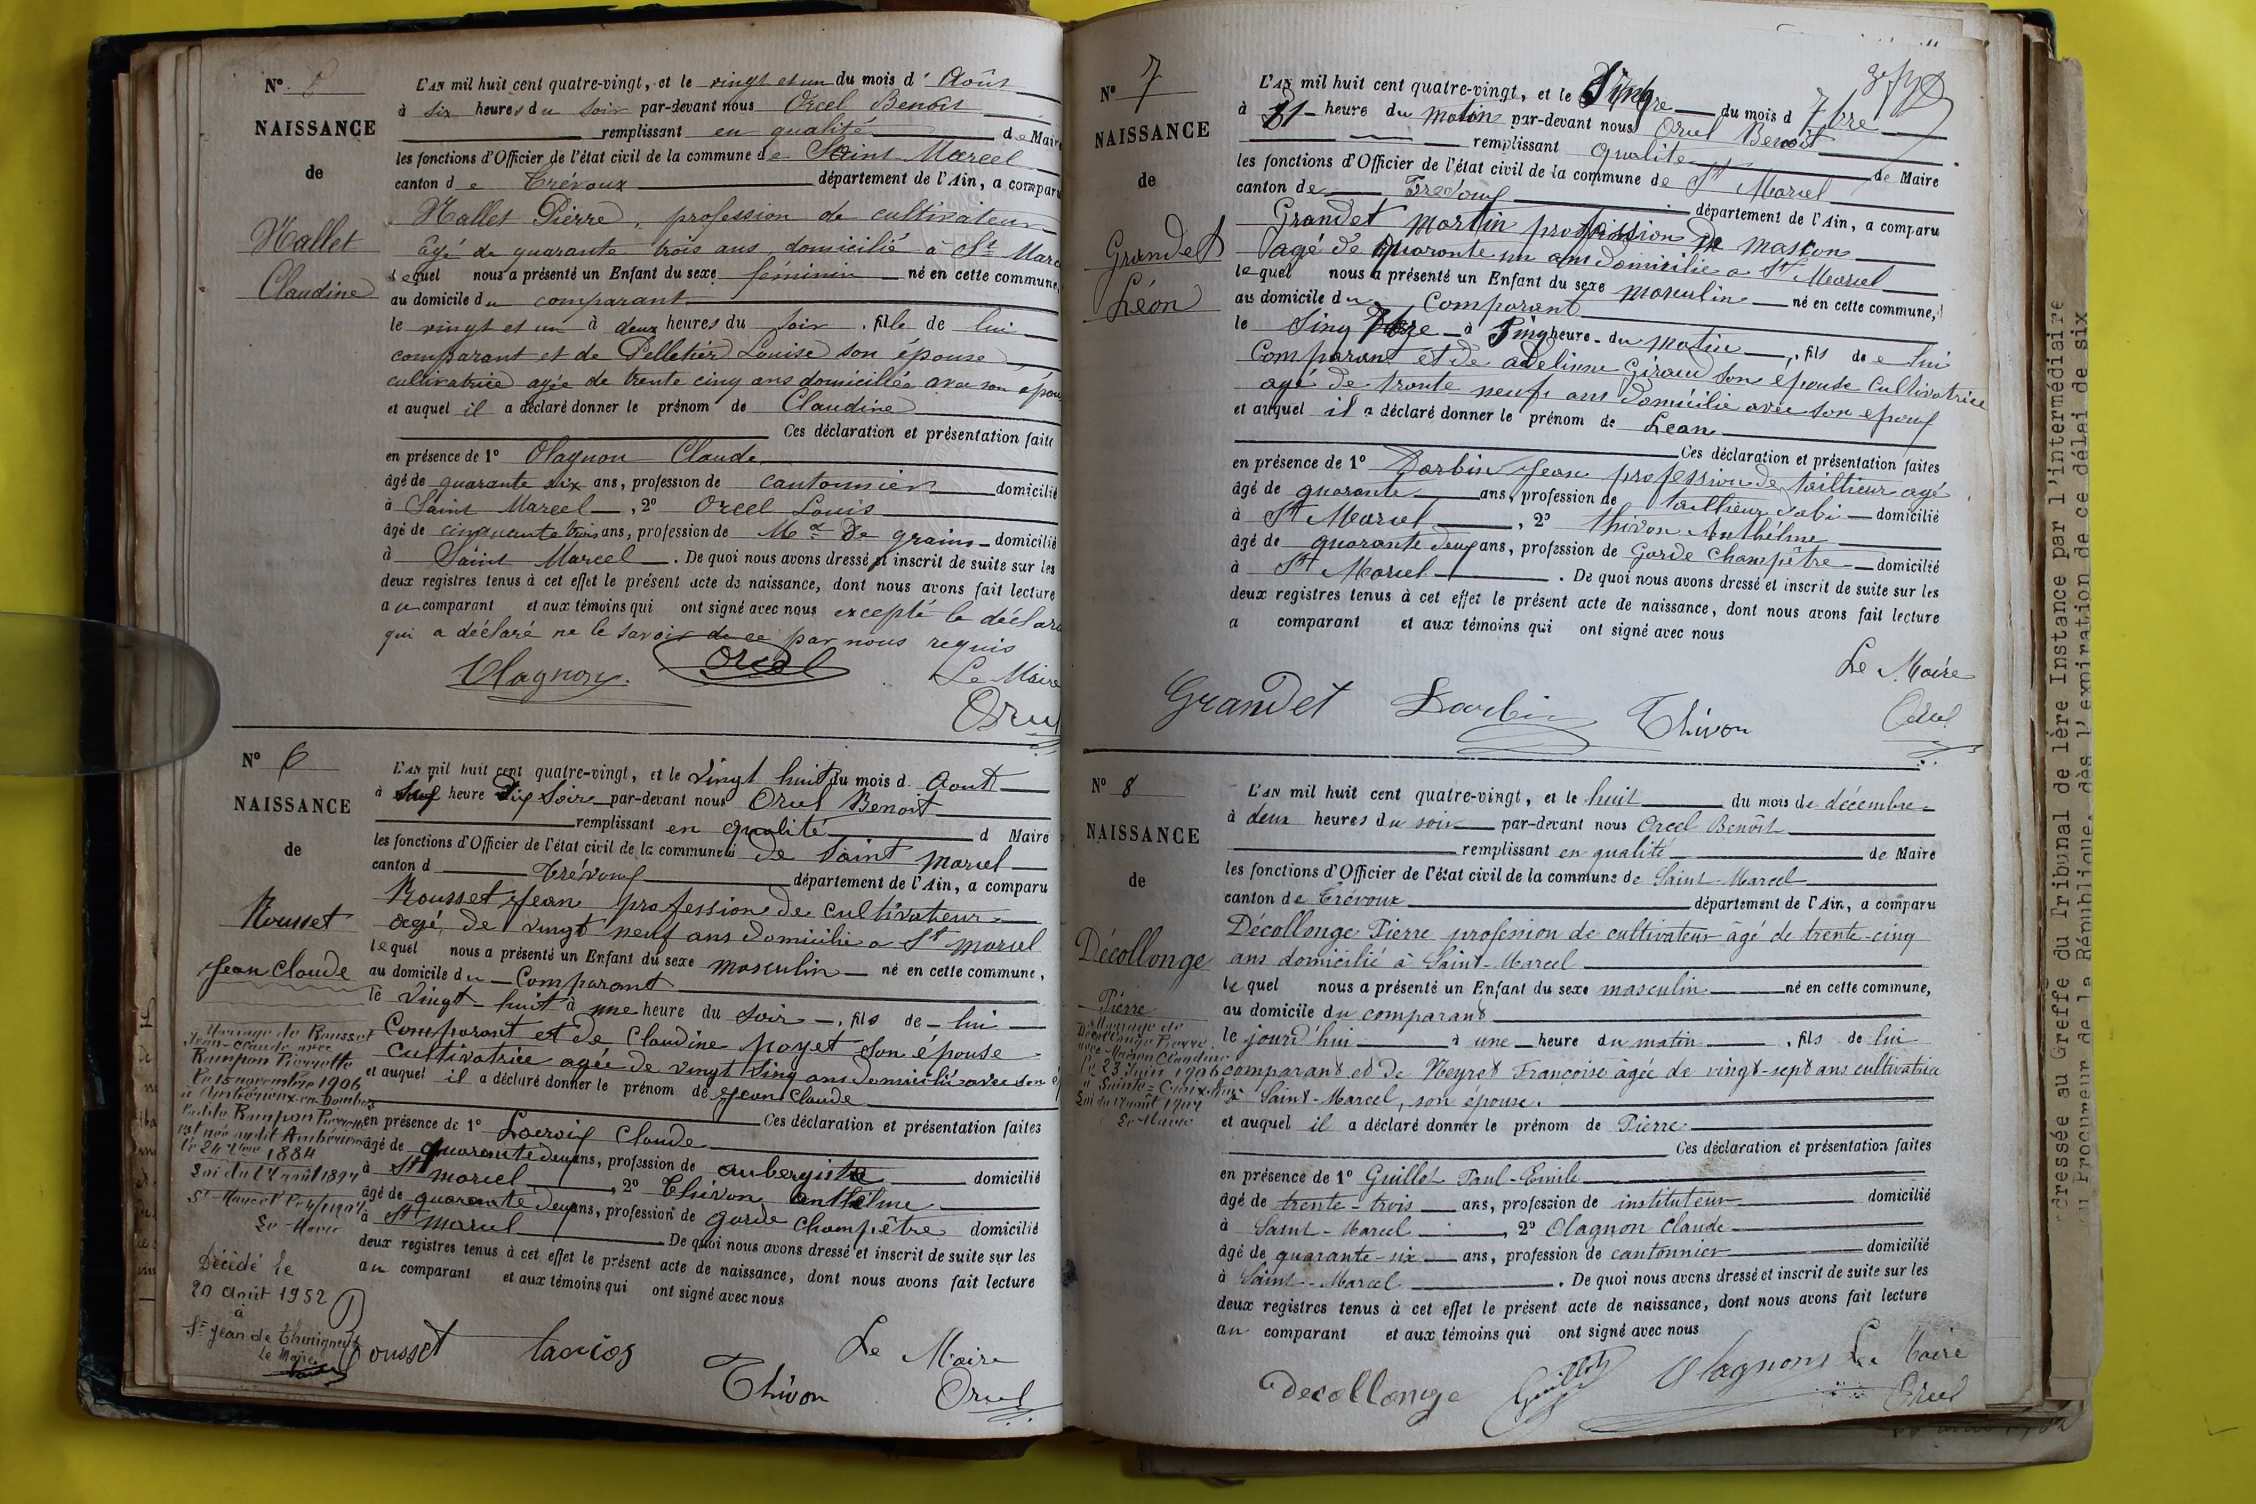 N° 5
NAISSANCE
de
Hallet
Claudine
L'AN mil huit cent quatre-vingt, et le vingt et un du mois d' Août
à six heures du soir par-devant nous Orcel Benoît
remplissant en qualité de Maire
les fonctions d'Officier de l'état civil de la commune de Saint Marcel
canton de Trévoux département de l'Ain, a comparu
Hallet Pierre, profession de cultivateur
âgé de quarante trois ans domicilié à St Marc
lequel nous a présenté un Enfant du sexe féminin né en cette commune,
au domicile du comparant
le vingt et un à deux heures du soir, fille de lui
comparant et de Pelletier Louise son épouse
cultivatrice agée de trente cinq ans domiciliée avec son épou
et auquel il a déclaré donner le prénom de Claudine
Ces déclaration et présentation faite
en présence de 1° Olagnon Claude
âgé de quarante six ans, profession de cantonnier domicilié
à Saint Marcel, 2° Orcel Louis
âgé de cinquante trois ans, profession de Md De grains domicilié
à Saint Marcel. De quoi nous avons dressé et inscrit de suite sur les
deux registres tenus à cet effet le présent acte de naissance, dont nous avons fait lecture
au comparant et aux témoins qui ont signé avec nous excepté le déclara
qui a déclaré ne le savoir de ce par nous requis
Olagnon Orcel Le Maire
Orcel
N° 6
NAISSANCE
de
Rousset
Jean Claude
Mariage de Rousset
Jean-Claude avec
Rampon Pierrette
le 15 novembre 1906
à Ambérieux-en-Dombes
Ladite Rampon Pierrette
est née audit Ambérieux
le 24 1884
Loi du 17 août 1897
St Marcel
Le Maire
Décédé le
20 août 1952
à
St Jean de Thurigneux
Le Maire
L'AN mil huit cent quatre-vingt, et le vingt huit du mois d Aout
à heure du Soir par-devant nous Orcel Benoit
remplissant en qualité d Maire
les fonctions d'Officier de l'état civil de la commune de Saint Marcel
canton d Trévoux département de l'Ain, a comparu
Rousset Jean profession de cultivateur
agé de vingt neuf ans domicilié a St Marcel
lequel nous a présenté un Enfant du sexe masculin né en cette commune,
au domicile du Comparant
le vingt-huit à une heure du soir, fils de lui
Comparant et de Claudine poyet son épouse
cultivatrice agée de vingt Sinq ans domicilié avec son é
et auquel il a déclaré donner le prénom de Jean Claude
Ces déclaration et présentation faites
en présence de 1° Lacroix Claude
âgé de quarante deux ans, profession de aubergiste domicilié
à St Marcel, 2° Thivon Anthelme
âgé de quarante deux ans, profession de garde champêtre domicilié
à St Marcel De quoi nous avons dressé et inscrit de suite sur les
deux registres tenus à cet effet le présent acte de naissance, dont nous avons fait lecture
au comparant et aux témoins qui ont signé avec nous
Rousset Lacroix Le Maire
Thivon Orcel
N° 7
NAISSANCE
de
Grandet
Léon
L'AN mil huit cent quatre-vingt, et le Sinq du mois d 7bre
à 11 heure du matin par-devant nous Orcel Benoit
remplissant qualite de Maire
les fonctions d'Officier de l'état civil de la commune de St Marcel
canton de Trevoux département de l'Ain, a comparu
Grandet martin profession de mascon
agé de quaronte un ans domicilie a St Marcel
lequel nous a présenté un Enfant du sexe masculin né en cette commune,
au domicile du Comparant
le Sinq 7bre à Sinq heure du matin, fils de lui
Comparant et de adelinne Giraud son épouse Cultivatrice
agé de tronte neuf ans domicilie avec son epoux
et auquel il a déclaré donner le prénom de Leon
Ces déclaration et présentation faites
en présence de 1° Dorbin Jean profession de taillieur agé
âgé de quaronte ans, profession de taillieur dabi domicilié
à St Marcel, 2° thivon Anthélme
âgé de quaronte deux ans, profession de Garde Champêtre domicilié
à St Marcel. De quoi nous avons dressé et inscrit de suite sur les
deux registres tenus à cet effet le présent acte de naissance, dont nous avons fait lecture
a comparant et aux témoins qui ont signé avec nous
Le Maire
Grandet Dorbin Thivon Orcel
N° 8
NAISSANCE
de
Décollonge
Pierre
Mariage de
Décollonge Pierre
avec Claudine
le 23 Juin 1906
à Sainte-Croix
Loi du 17 août 1897
Le Maire
L'AN mil huit cent quatre-vingt, et le huit du mois de décembre
à deux heures du soir par-devant nous Orcel Benoît
remplissant en qualité de Maire
les fonctions d'Officier de l'état civil de la commune de Saint-Marcel
canton de Trévoux département de l'Ain, a comparu
Décollonge Pierre profession de cultivateur âgé de trente-cinq
ans domicilié à Saint-Marcel
lequel nous a présenté un Enfant du sexe masculin né en cette commune,
au domicile du comparant
le jourd'hui à une heure du matin, fils de lui
comparant et de Neyret Françoise âgée de vingt-sept ans cultivatrice
à Saint-Marcel, son épouse.
et auquel il a déclaré donner le prénom de Pierre
Ces déclaration et présentation faites
en présence de 1° Guillot Paul-Emile
âgé de trente-trois ans, profession de instituteur domicilié
à Saint-Marcel, 2° Olagnon Claude
âgé de quarante-six ans, profession de cantonnier domicilié
à Saint-Marcel. De quoi nous avons dressé et inscrit de suite sur les
deux registres tenus à cet effet le présent acte de naissance, dont nous avons fait lecture
au comparant et aux témoins qui ont signé avec nous
Decollonge Guillot Olagnon Le Maire
Orcel
dressée au Greffe du Tribunal de 1ère Instance par l'intermédiaire
du Procureur de la République, dès l'expiration de ce délai de six